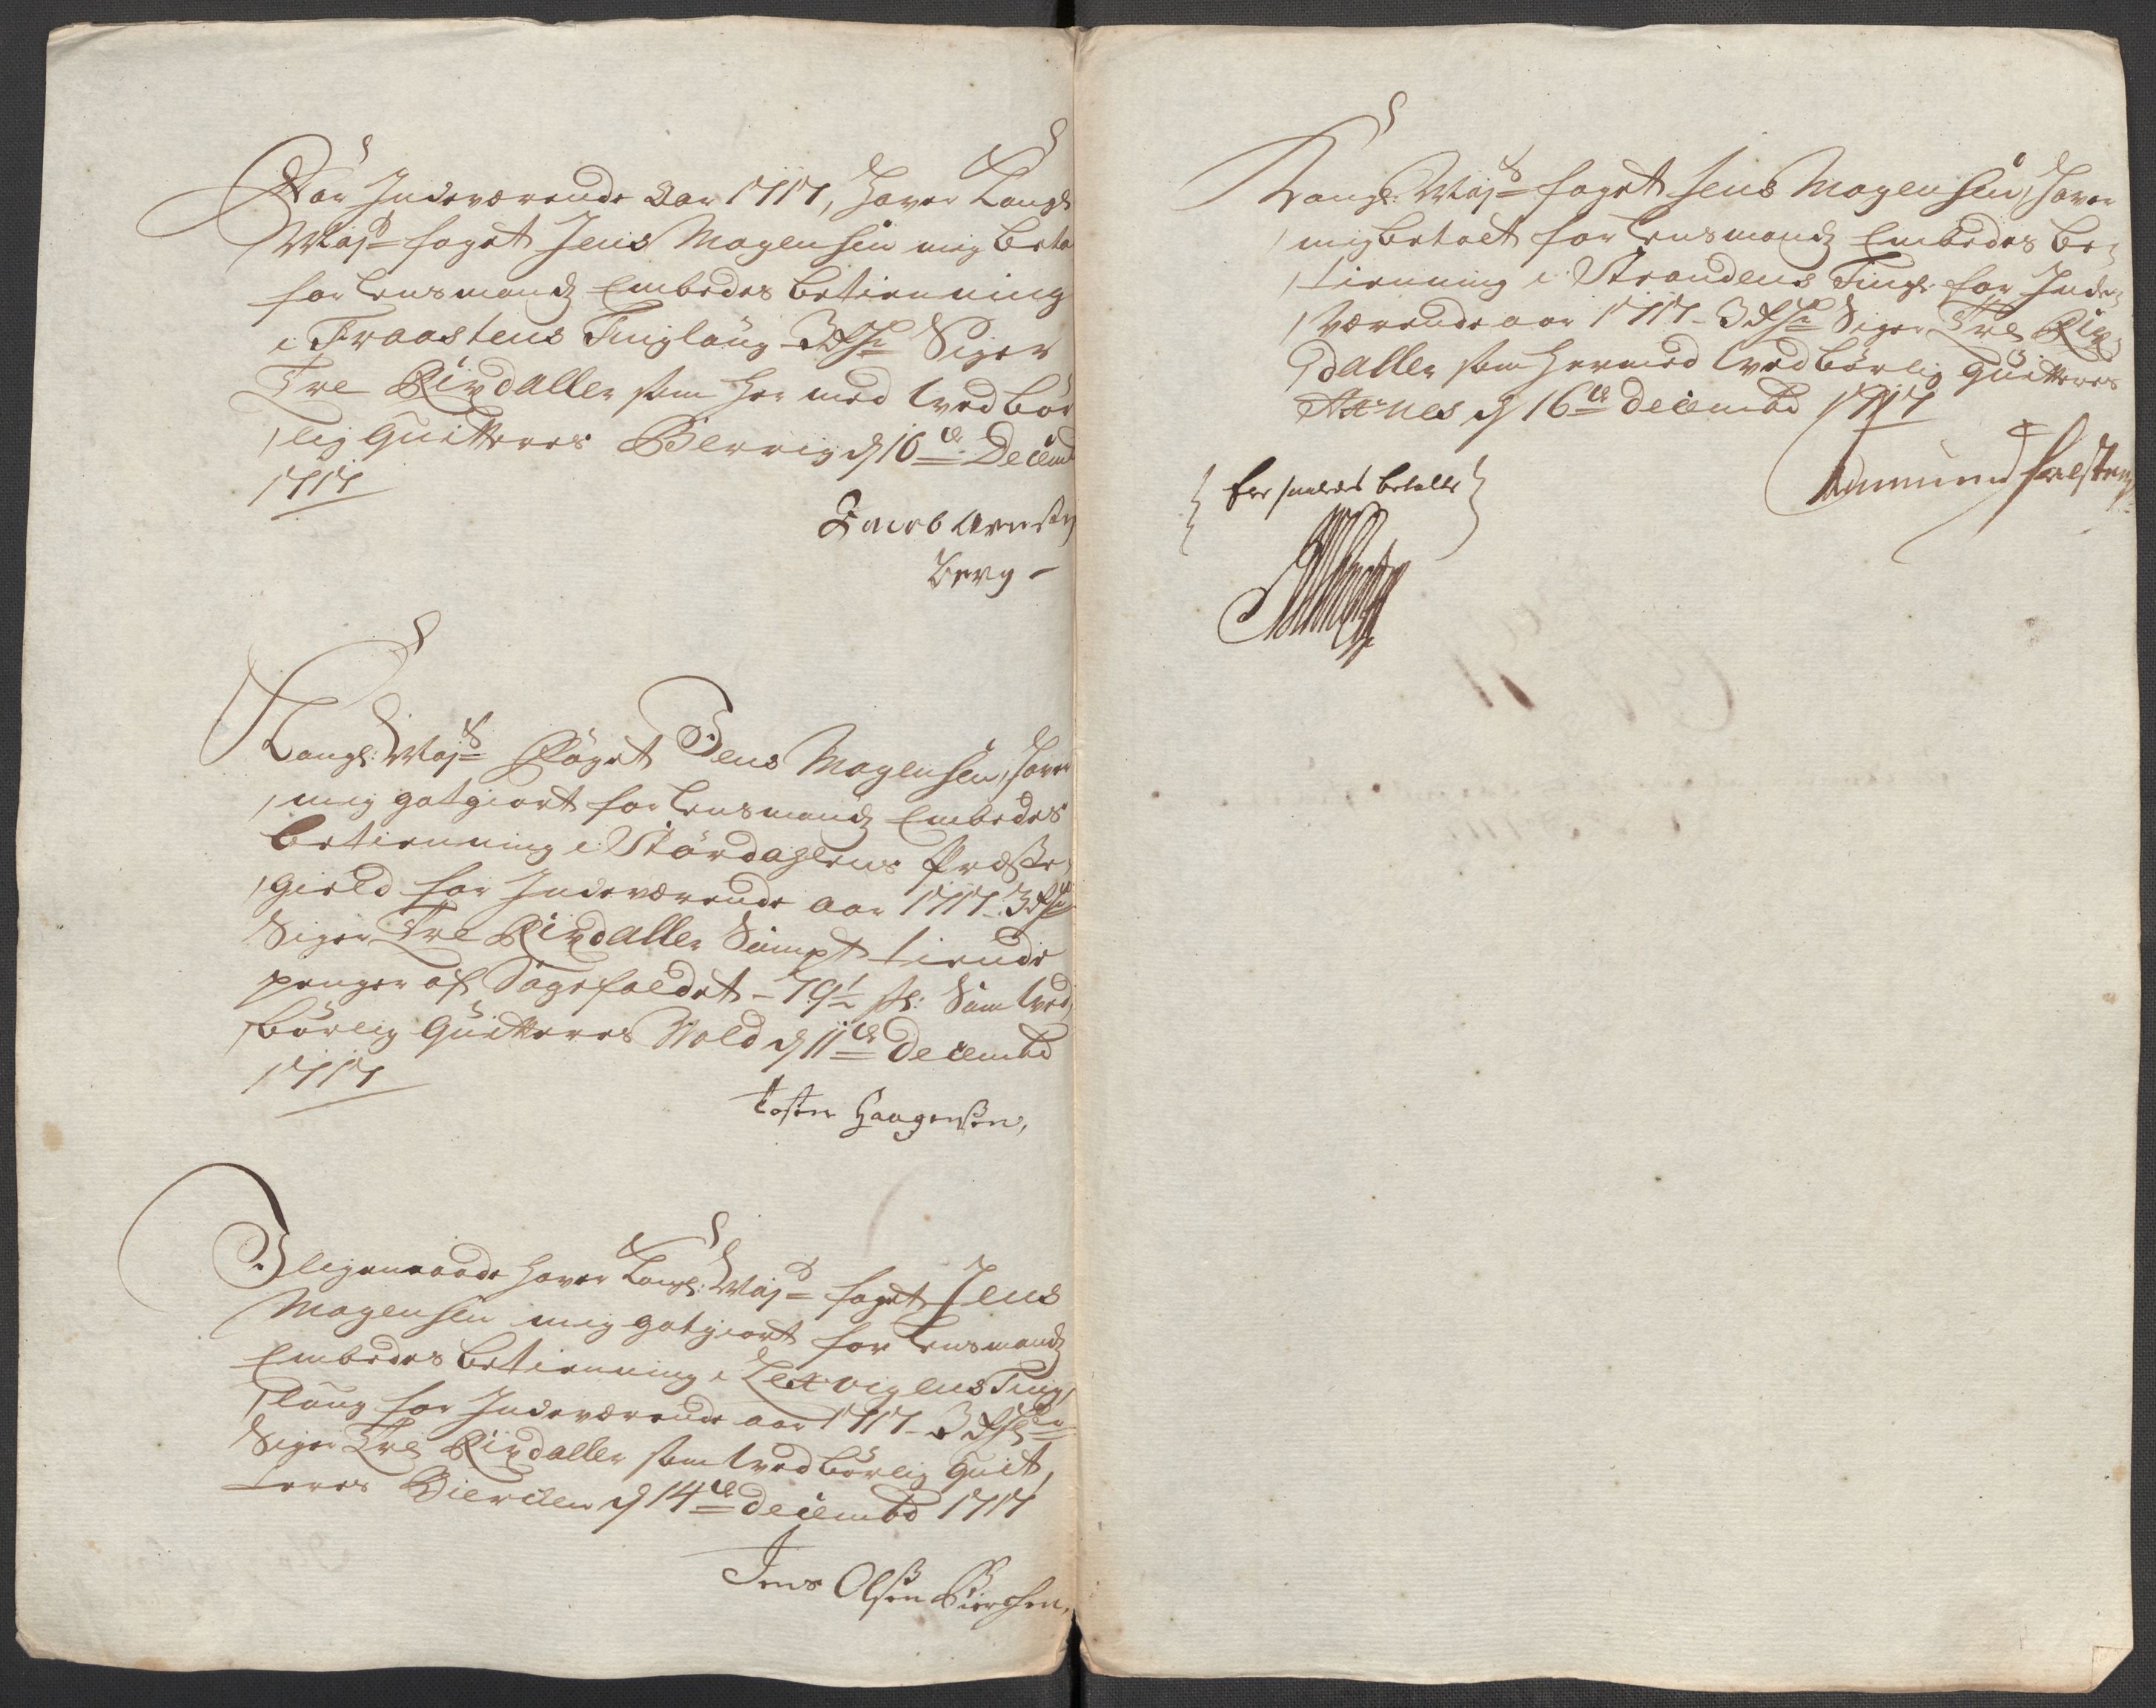 For Indeværende Aar 1717, hafver Kongl:
Majts foget Jens Mogensen mig beta
for Lensmands Embedes betienning
i Fraastens Tinglaug 3 Rdr Siger
Tre Rixdaller som her med ved bør
lig quitteres Berrig d 10de Decemb
1717
Jacob Arentsen
Berg
Kongl: Majts Foget Jens Mogensen, hafver
mig gotgiort for Lensmands Embedes
betienning i Størdahlens Præste
gield for Indeværende aar 1717 3 Rdr
Siger Tre Rixdaller Sampt tiende
penger af Sagefaldet 79½ s: Som ved
børlig quitteres Wold d 11te Decembr
1717
Tosten Haagensen,
I ligemaade hafver Kongl: Majts foget Jens
Mogensen mig gotgiort for Lensmands
Embedes betienning i Lexvigens Ting
laug for Indeværende aar 1717 3 Rdr
Siger Tre Rixdaller som ved børlig quit
teres Bierchen d 14de Decembr 1717
Jens Olsen Bierchen,
Kongl: Majts foget Jens Mogensen, hafver
mig betalt for Lensmands Embedes be
tienning i Strandens Tingl: for Inde
værende aar 1717 3 Rdr Siger Tre Rix
daller som hermed ved børlig quitteres
Axnes d 16de Decembr 1717
Er saaledes betalte